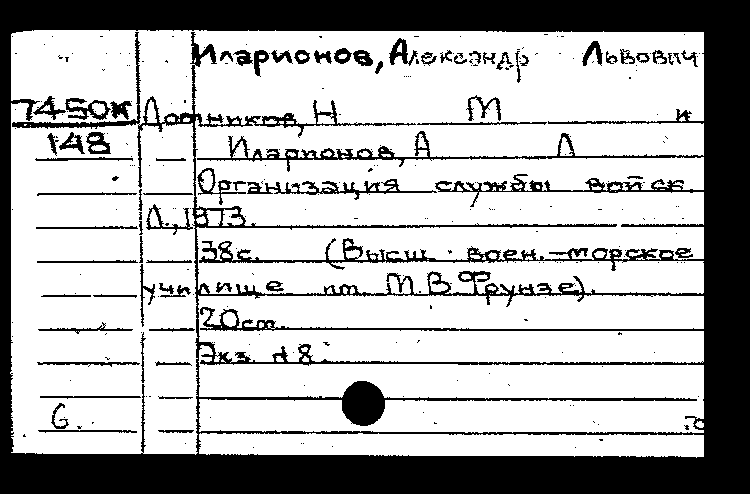 Иларионов, Александр Львович
7450к Дотников, Н М и
148 Иларионов, А Л
Организация службы войск.
Л., 1973.
38с. (Высш. воен.-морское
училище им. М.В.Фрунзе).
20см.
Экз. № 8.
6.